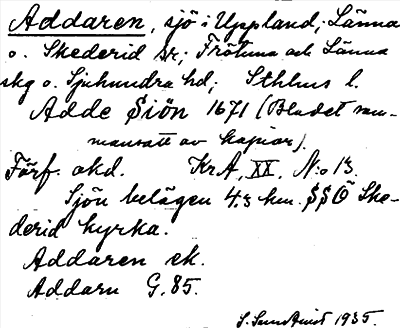 Addaren, sjö i Uppland; Länna
o. Skederid sr; Frötuna och Länna
skg o. Sjuhundra hd; Sthlms l.
Adde Siön 1671 (Bladet sam-
mansatt av kopior).
Förf. okd. Kr A, XX, N:o 13.
Sjön belägen 4.3 km. SSÖ Ske-
derid kyrka.
Addaren ek.
Addarn G. 85.
1935.